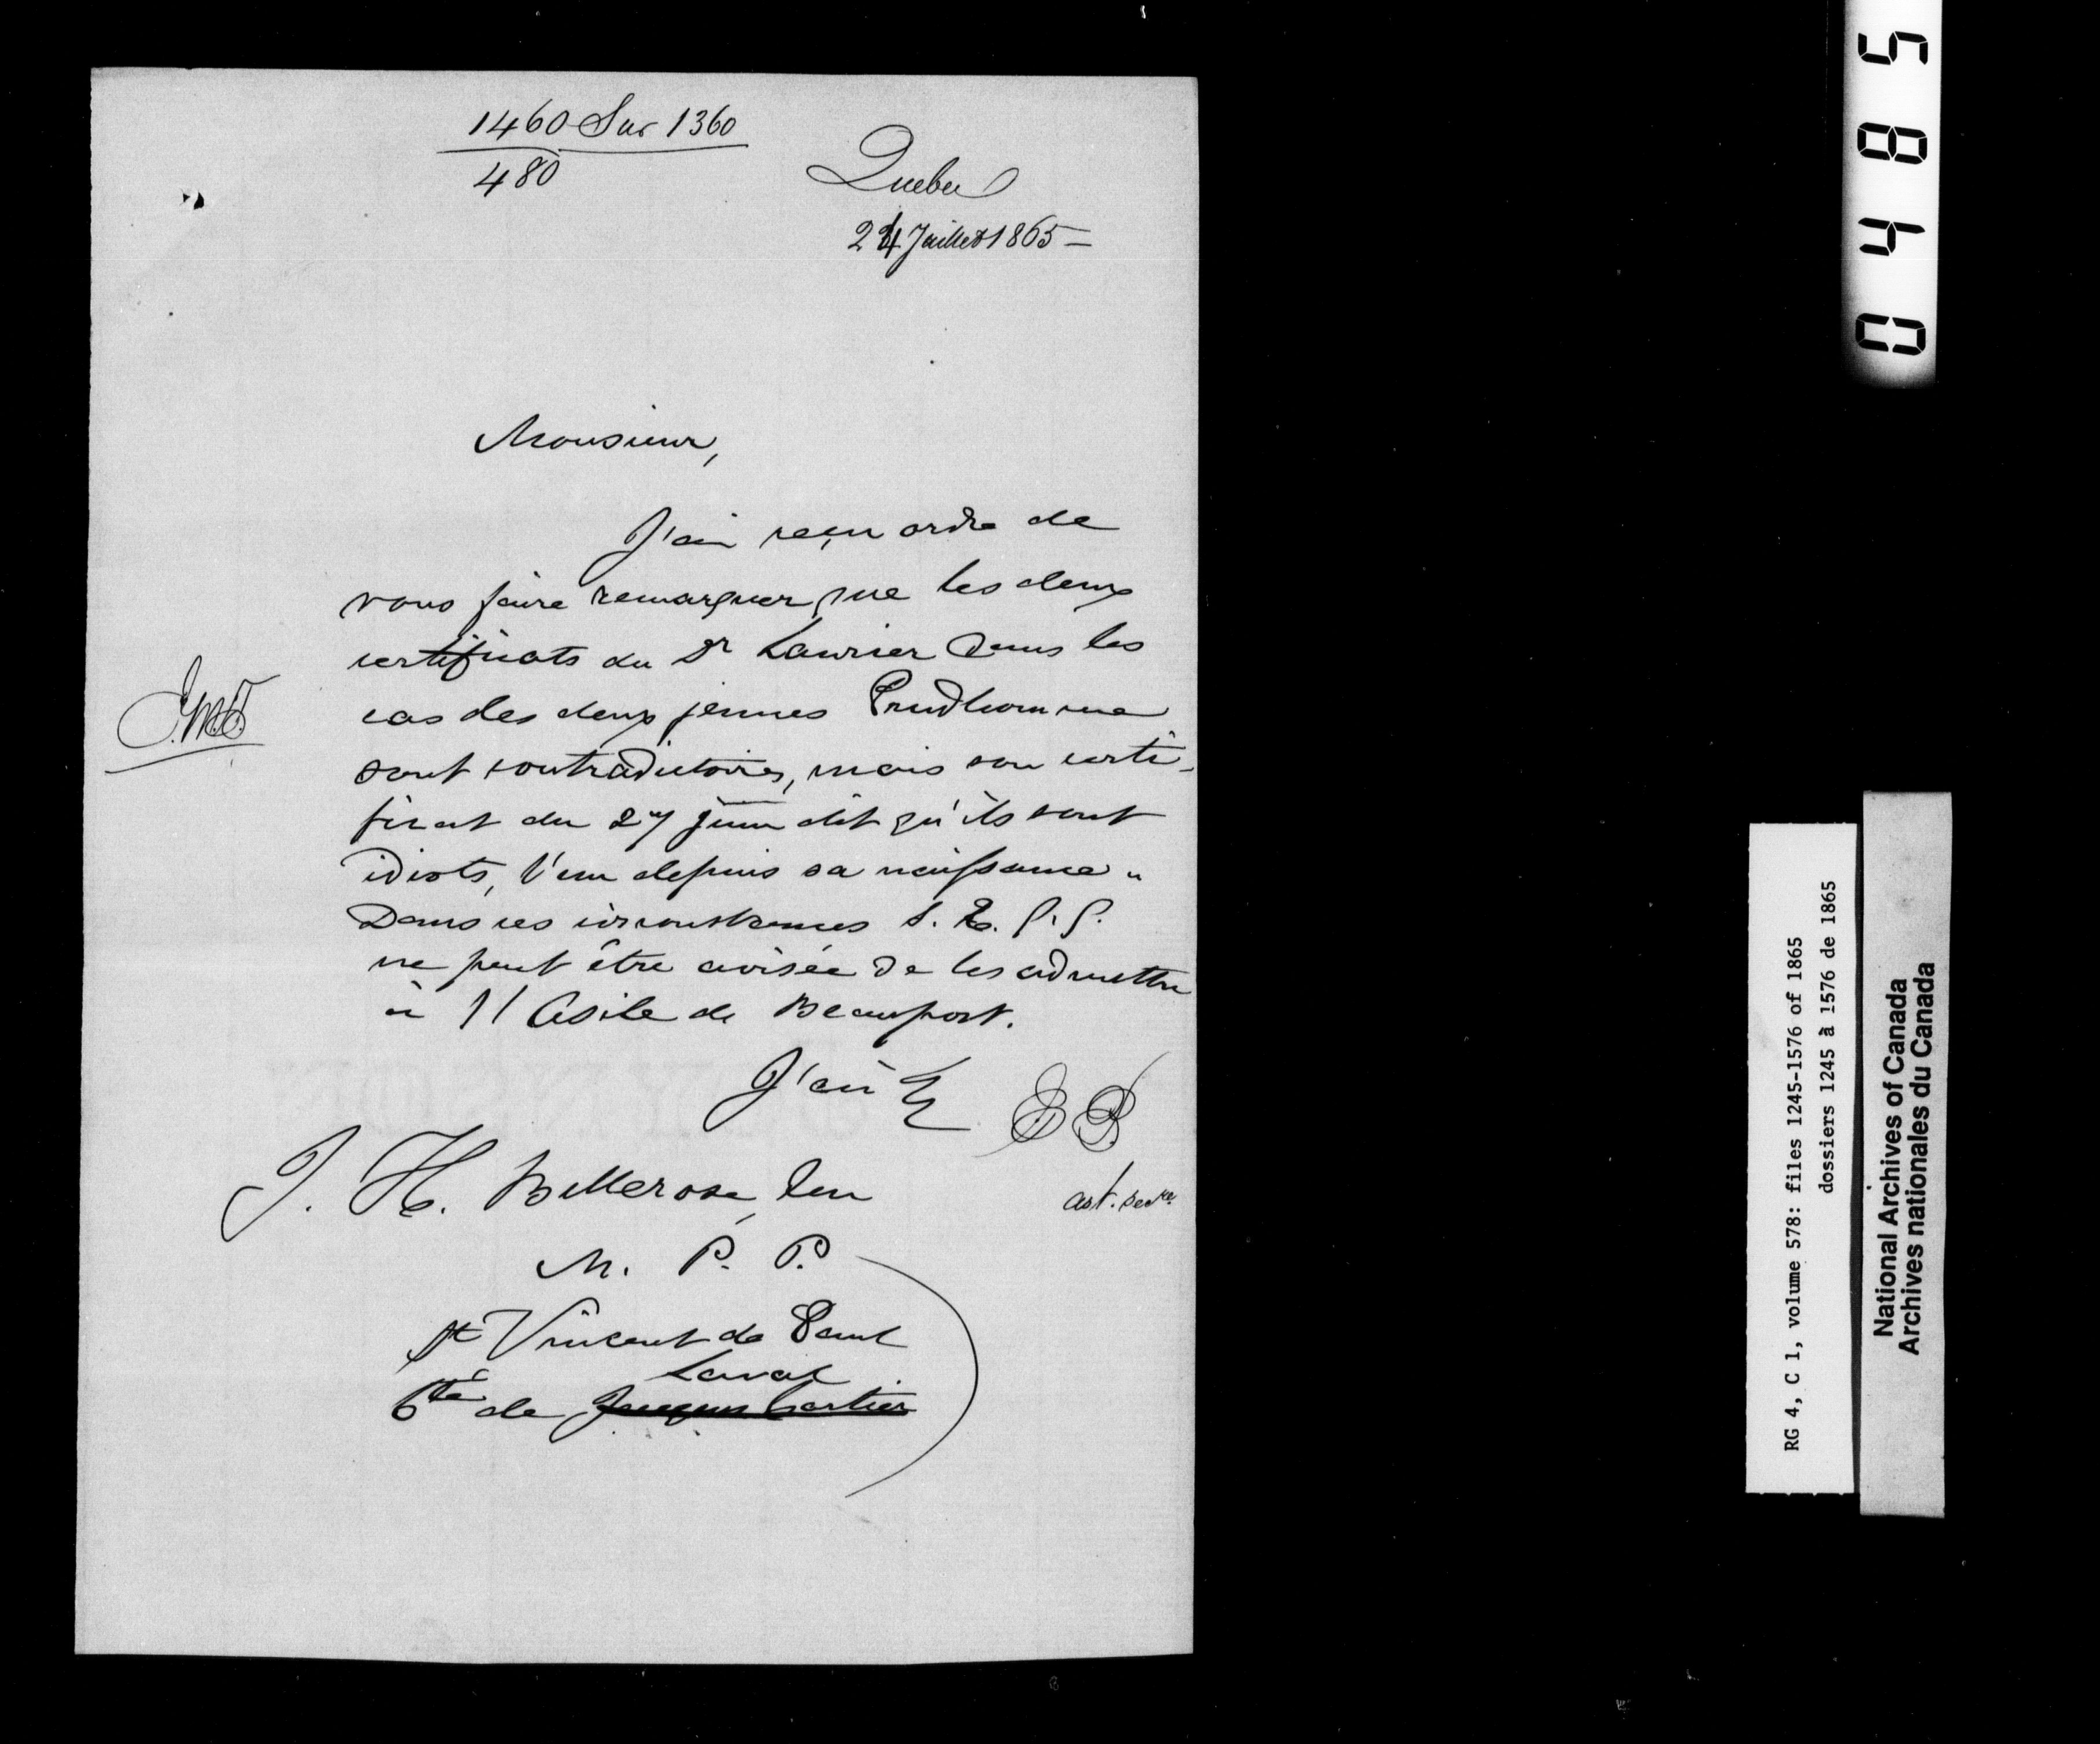 1460 Sur 1360
480
Quebec
24 Juillet 1865 –
Monsieur,
J'ai reçu ordre de
vous faire remarquer que les deux
certificats du Dr Laurier dans les
cas des deux jeunes Prudhomme
sont contradictoires, mais son certi-
ficat du 27 juin dit qu'ils sont
idiots, l'un depuis sa naissance.
Dans ces circonstances S. E.
ne peut être avisée de les admettre
à l'Asile de Beauport.
J'ai &
E B
ast. Secre
J. H. Bellerose, Ecr
M. P. P.
St Vincent de Paul
Laval
Cté de Jacques Cartier
0485
RG 4, C 1, volume 578: files 1245-1576 of 1865
dossiers 1245 à 1576 de 1865
National Archives of Canada
Archives nationales du Canada